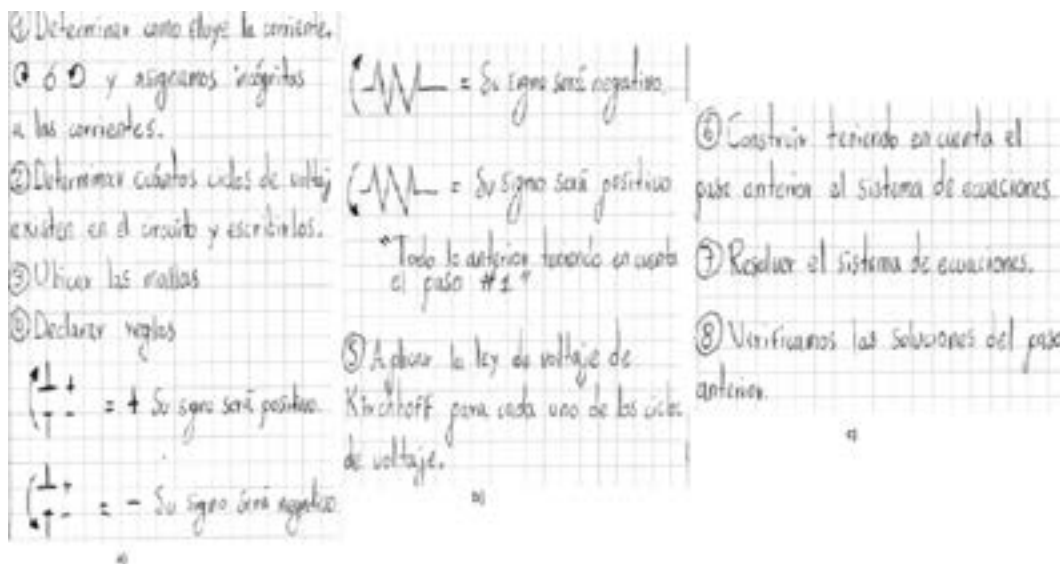 ① Determinar como fluye la corriente.
↻ ó ↺ y asignamos incógnitas
a las corrientes.
② Determinar cuántos ciclos de voltaj
existen en el circuito y escribirlos.
③ Ubicar las mallas
④ Declarar reglas
+
-
= + Su signo será positivo.
+
-
= - Su signo será negativo
a)
= Su signo será negativo.
= Su signo será positivo.
"Todo lo anterior teniendo en cuenta
el paso #1"
⑤ Aplicar la ley de voltaje de
Kirchhoff para cada uno de los ciclos
de voltaje.
b)
⑥ Construir teniendo en cuenta el
paso anterior el sistema de ecuaciones.
⑦ Resolver el sistema de ecuaciones.
⑧ Verificamos las soluciones del paso
anterior.
c)